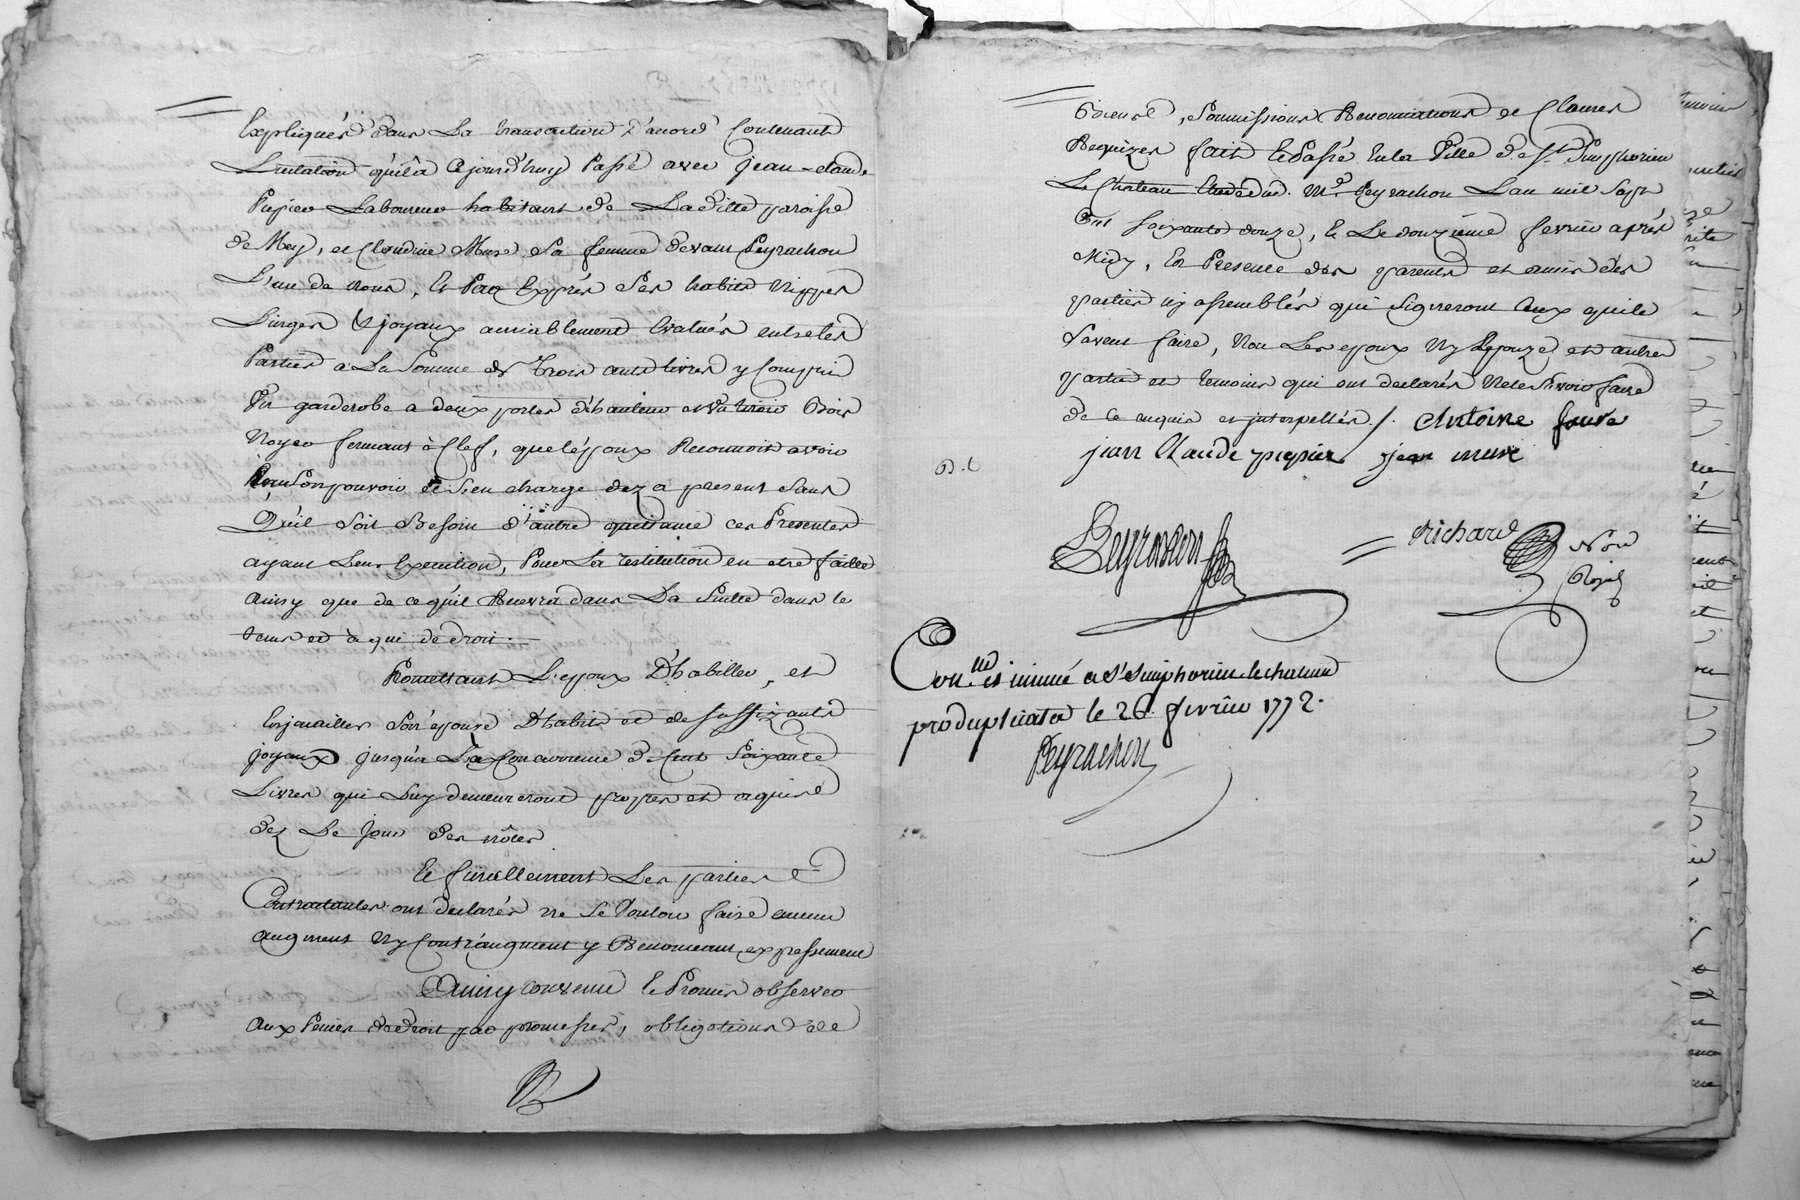 Expliqués dans La transaction d'accord Contenant
quil a Cejourd'huy Passé avec Jean-claude
Pupier Laboureur habitant de Laditte paroisse
de Meys, et Claudine Mure Sa femme devant Peyrachon
L'un de nous, Et Par Exprès Ses habits nippes
Linges & joyaux amiablement Evalués entre les
Parties a La Somme de Trois cents livres y Compris
Un garderobe a deux portes de hauteur et un tiroir Bois
Noyer fermant à Clef, que l'époux Reconnoit avoir
En Son pouvoir et S'en charge dez a present Sans
Qu'il Soit Besoin d'autre quittance ces Presentes
ayant Leur Execution, Pour La restitution en etre faitte
Ainsy que de ce qu'il Recevra dans La Suitte dans le
tems et à qui de droit.
Promettant L'epoux D'habiller, et
Enjoailler Son epouze D'habits et de suffizants
joyaux jusqu'à La Concurrence de Cent Soixante
Livres qui Luy demeureront propres et acquis
dez Le Jour des nôces
Et finallement Les parties
Contractantes ont declarés ne Se Vouloir faire aucun
Augment Ny Contr'augment y Renonceant expressement
Ainsy convenu Et Promis observer
Aux Peines de droit par promesses, obligations de
Biens, Soumissions Renonciations et Clauses
Requizes fait et Passé En la Ville de St. Simphorien
Le Chateau Etude dud. Me. Peyrachon L'an mil Sept
Cent Soixante douze, Et Le douzième fevrier après
Midy, En Presence des parents et amis des
parties icy assemblés qui Signeront Ceux qui le
Savent faire, Non Les epoux Ny Epouze et autres
partie et temoins qui ont declarés ne le Savoir faire
de ce enquis et interpellés ./. Antoine faure
jean Claude pupier jean mure
D. C
Peyrachon
Richard
No.re
Royal
Con.lle et insinué a St Simphorien le chateau
pro duplicata le 26 fevrier 1772.
Peyrachon